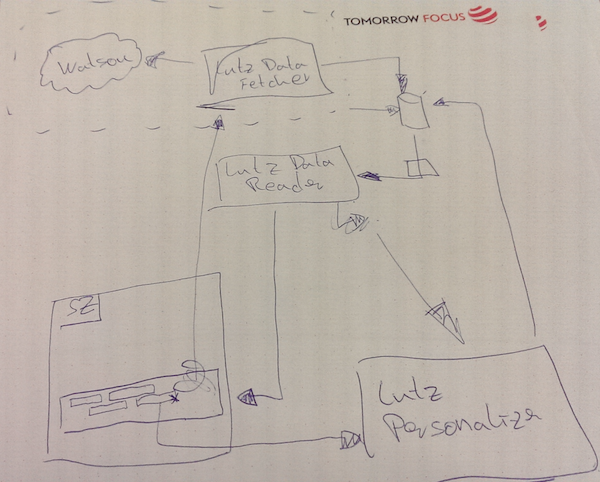 TOMORROW FOCUS
Watson
Lutz Data
Fetcher
Lutz Data
Reader
SZ
Lutz
Personalizer